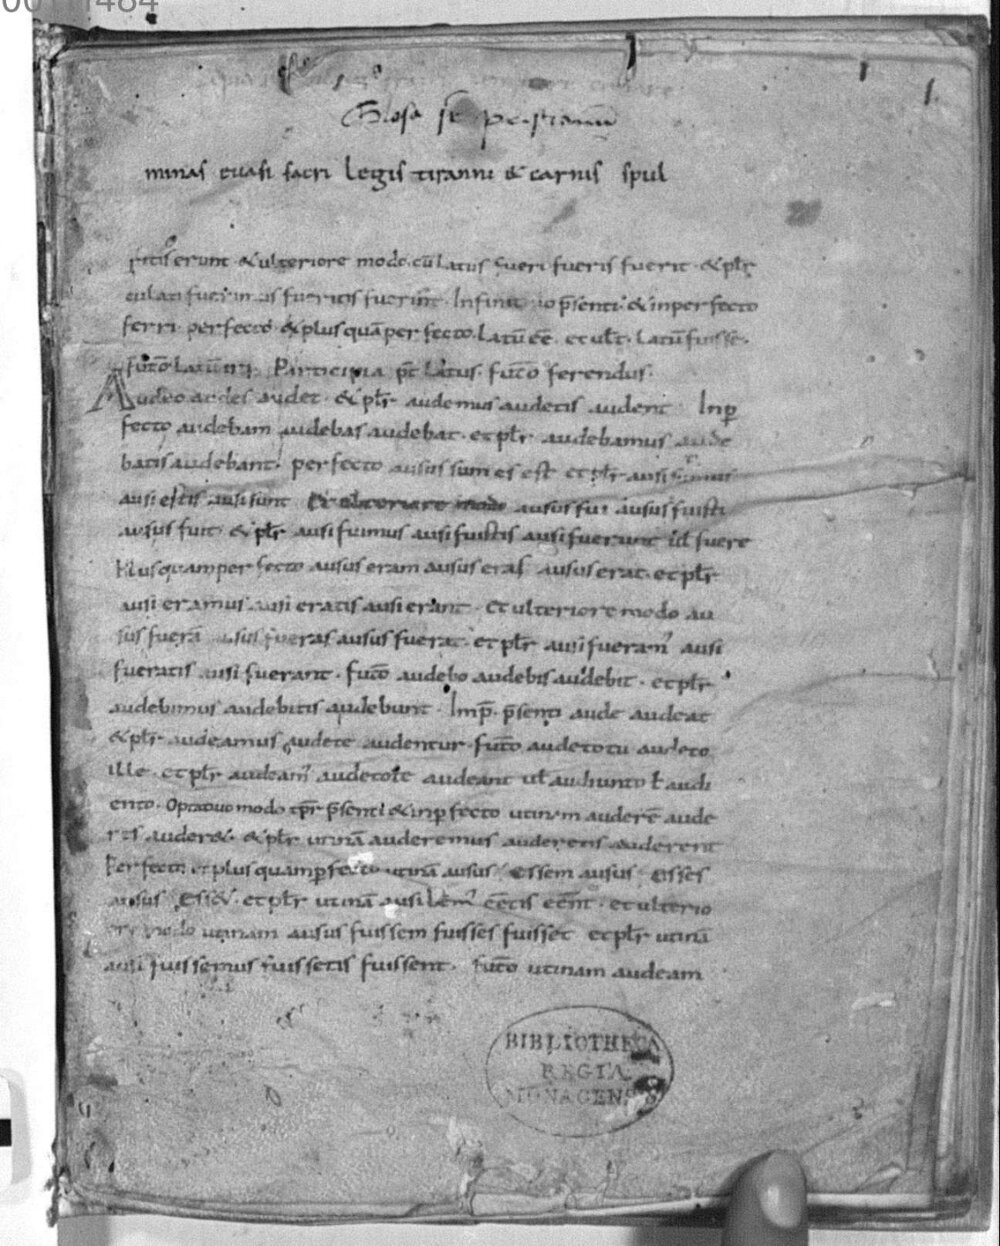 00111484
Glosa sup
minas quasi sacri legis tiranni & carnis spul
erunt & ulteriore modo. cū latus fueri fueris fuerit & plr̄
fuerimus fueritis fuerint. Infinit p̄senti & inperfecto
ferri. perfecto & plusquāperfecto. Latū eē. et ult̄. Latū fuisse.
fut̄o latū iri. Participia p̄t Latus. fut̄o ferendus.
Audeo audes audet. & plr̄ audemus audetis audent. Inp̄
fecto audebam audebas audebat. et plr̄ audebamus aude
batis audebant. perfecto ausus sum es est et plr̄ ausi sumus
ausi estis ausi sunt Et ulteriore modo ausus fui ausus fuisti
ausus fuit. & plr̄ ausi fuimus ausi fuistis ausi fuerunt ul̄ fuere
Plusquamperfecto ausus eram ausus eras ausus erat. et plr̄
ausi eramus ausi eratis ausi erant. Et ulteriore modo au
sus fuerā ausus fueras ausus fuerat. et plr̄ ausi fueram᾽ ausi
fueratis ausi fuerant. fut̄o audebo audebis audebit. et plr̄
audebimus audebitis audebunt. Imp̄. p̄senti aude audeat
& plr̄ audeamus audete audentur. fut̄o audeto tu audeto
ille. et plr̄ audeam᾽ audetote audeant ul̄ audiunto ł audi
ento. Optativo modo tp̄r p̄senti & inp̄fecto utinam auderē aude
res auder&. & plr̄ utinā auderemus auderetis auderent
Perfecto et plusquamp̄fecto utinā ausus essem ausus esses
ausus ess&. et plr̄ utinā ausi eēm᾽ eētis eēnt. et ulterio
re modo utinam ausus fuissem fuisses fuisset et plr̄ utinā
ausi fuissemus fuissetis fuissent. fut̄o utinam audeam
BIBLIOTHECA
REGIA
MONACENSIS